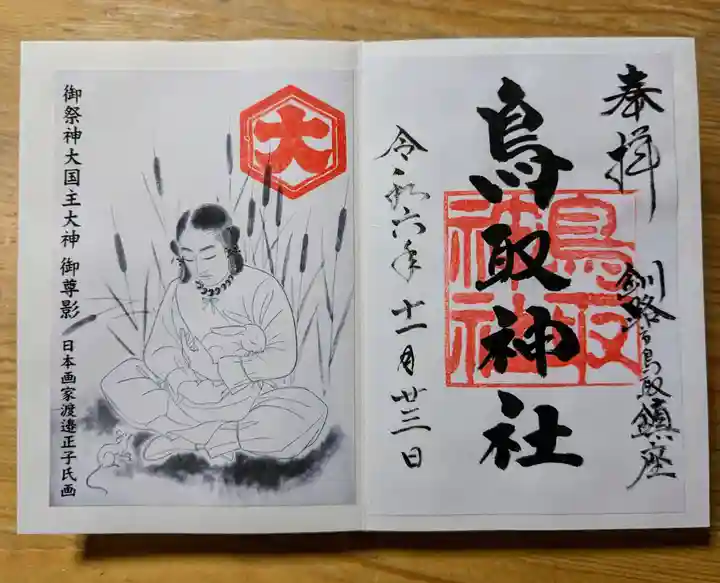 奉拝
釧路市鳥取鎮座
鳥取神社
鳥取神社
令和六年十一月廿三日
大
御祭神大国主大神 御尊影/日本画家渡邉正子氏画